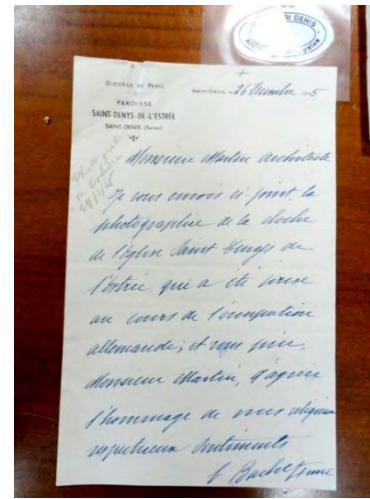 DIOCÈSE DE PARIS
PAROISSE
SAINT-DENYS-DE-L'ESTRÉE
SAINT-DENIS (Seine)
SAINT-DENIS, le 26 Décembre
Monsieur Martin architecte
Je vous envois ci joint, la
photographie de la cloche
de l'Eglise Saint Denys de
l'Estrée qui a été prise
au cours de l'occupation
allemande; et vous prie,
Monsieur Martin, d'agréer
l'hommage de mes religieux
respectueux sentiments